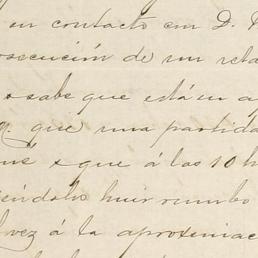 en contacto con D.
osecución de un rela
sabe que está en a
que una partida
que á las 10 h
éndolos huir rumbo
vez á la aproximac